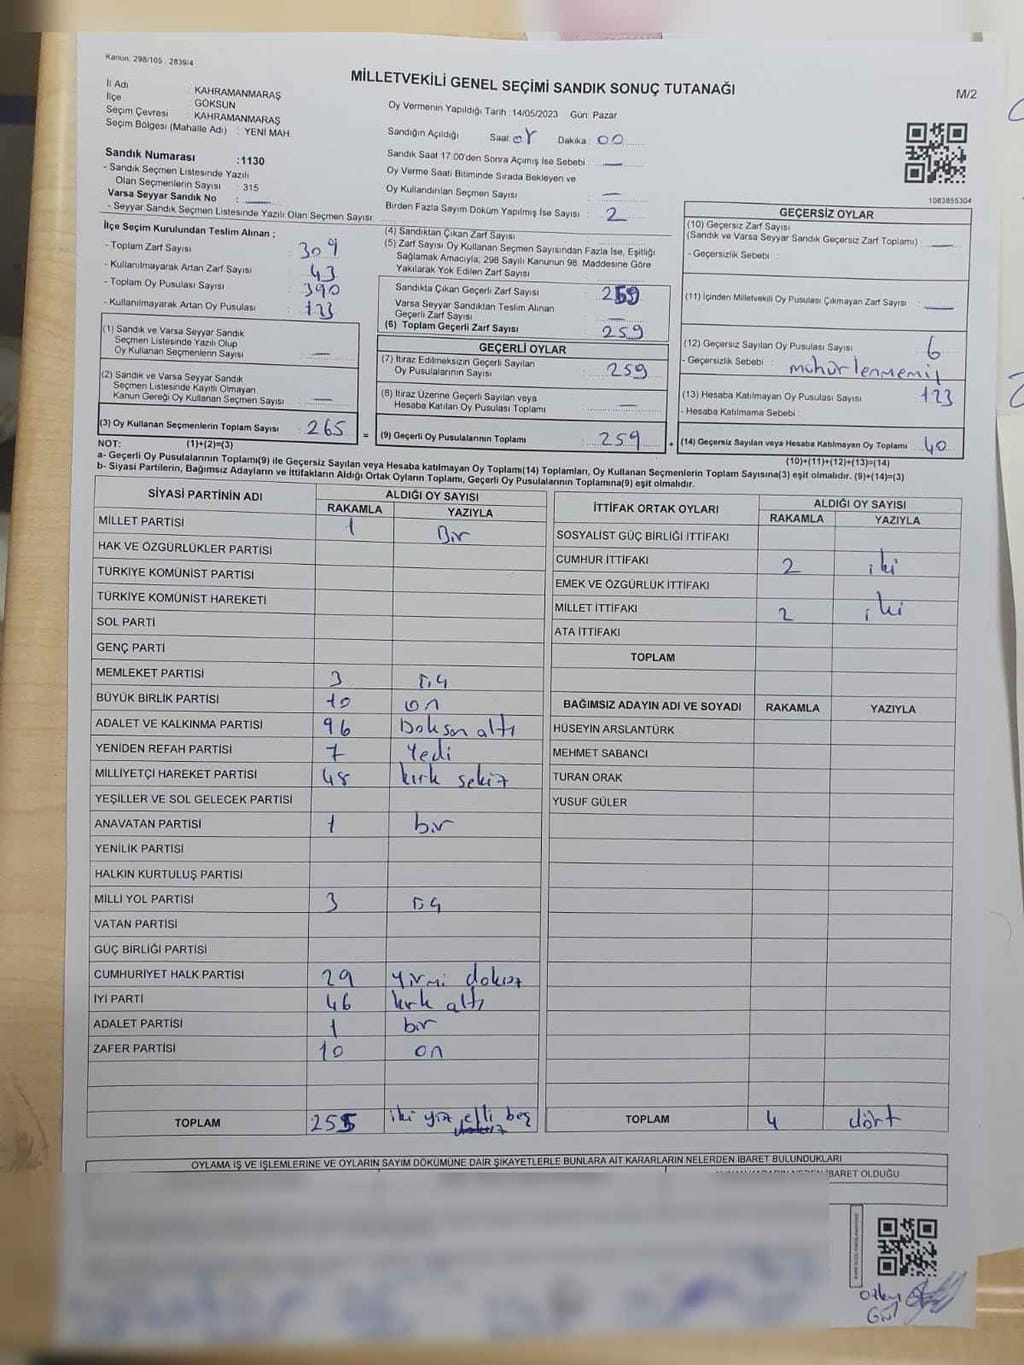 Kanun: 298/105 , 2839/4
MİLLETVEKİLİ GENEL SEÇİMİ SANDIK SONUÇ TUTANAĞI
M/2
İl Adı : KAHRAMANMARAŞ
İlçe : GÖKSUN
Seçim Çevresi : KAHRAMANMARAŞ
Seçim Bölgesi (Mahalle Adı) : YENİ MAH.
Sandık Numarası :1130
- Sandık Seçmen Listesinde Yazılı
Olan Seçmenlerin Sayısı : 315
Varsa Seyyar Sandık No :
- Seyyar Sandık Seçmen Listesinde Yazılı Olan Seçmen Sayısı:
Oy Vermenin Yapıldığı Tarih :14/05/2023 Gün: Pazar
Sandığın Açıldığı Saat: 08 Dakika: 00
Sandık Saat 17.00'den Sonra Açımış İse Sebebi : —
Oy Verme Saati Bitiminde Sırada Bekleyen ve
Oy Kullandırılan Seçmen Sayısı : —
Birden Fazla Sayım Döküm Yapılmış İse Sayısı : 2
1083855304
İlçe Seçim Kurulundan Teslim Alınan ;
- Toplam Zarf Sayısı : 309
- Kullanılmayarak Artan Zarf Sayısı : 43
- Toplam Oy Pusulası Sayısı : 390
- Kullanılmayarak Artan Oy Pusulası : 123
(1) Sandık ve Varsa Seyyar Sandık
Seçmen Listesinde Yazılı Olup
Oy Kullanan Seçmenlerin Sayısı : —
(2) Sandık ve Varsa Seyyar Sandık
Seçmen Listesinde Kayıtlı Olmayan
Kanun Gereği Oy Kullanan Seçmen Sayısı : —
(3) Oy Kullanan Seçmenlerin Toplam Sayısı : 265
(4) Sandıktan Çıkan Zarf Sayısı :
(5) Zarf Sayısı Oy Kullanan Seçmen Sayısından Fazla İse, Eşitliği
Sağlamak Amacıyla; 298 Sayılı Kanunun 98. Maddesine Göre
Yakılarak Yok Edilen Zarf Sayısı :
Sandıkta Çıkan Geçerli Zarf Sayısı : 259
Varsa Seyyar Sandıktan Teslim Alınan
Geçerli Zarf Sayısı : —
(6) Toplam Geçerli Zarf Sayısı : 259
GEÇERLİ OYLAR
(7) İtiraz Edilmeksizin Geçerli Sayılan
Oy Pusulalarının Sayısı : 259
(8) İtiraz Üzerine Geçerli Sayılan veya
Hesaba Katılan Oy Pusulası Toplamı : —
= (9) Geçerli Oy Pusulalarının Toplamı : 259
GEÇERSİZ OYLAR
(10) Geçersiz Zarf Sayısı
(Sandık ve Varsa Seyyar Sandık Geçersiz Zarf Toplamı) : —
- Geçersizlik Sebebi :
(11) İçinden Milletvekili Oy Pusulası Çıkmayan Zarf Sayısı : —
(12) Geçersiz Sayılan Oy Pusulası Sayısı : 6
- Geçersizlik Sebebi : mühürlenmemiş
(13) Hesaba Katılmayan Oy Pusulası Sayısı : 123
- Hesaba Katılmama Sebebi :
+ (14) Geçersiz Sayılan veya Hesaba Katılmayan Oy Toplamı : 40
NOT: (1)+(2)=(3)
(10)+(11)+(12)+(13)=(14)
a- Geçerli Oy Pusulalarının Toplamı(9) ile Geçersiz Sayılan veya Hesaba katılmayan Oy Toplamı(14) Toplamları, Oy Kullanan Seçmenlerin Toplam Sayısına(3) eşit olmalıdır. (9)+(14)=(3)
b- Siyasi Partilerin, Bağımsız Adayların ve İttifakların Aldığı Ortak Oyların Toplamı, Geçerli Oy Pusulalarının Toplamına(9) eşit olmalıdır.
SİYASİ PARTİNİN ADI ALDIĞI OY SAYISI
RAKAMLA YAZIYLA
MİLLET PARTİSİ 1 Bir
HAK VE ÖZGÜRLÜKLER PARTİSİ
TÜRKİYE KOMÜNİST PARTİSİ
TÜRKİYE KOMÜNİST HAREKETİ
SOL PARTİ
GENÇ PARTİ
MEMLEKET PARTİSİ 3
BÜYÜK BİRLİK PARTİSİ 10 on
ADALET VE KALKINMA PARTİSİ 96 Doksan altı
YENİDEN REFAH PARTİSİ 7 Yedi
MİLLİYETÇİ HAREKET PARTİSİ 48 kırk sekiz
YEŞİLLER VE SOL GELECEK PARTİSİ
ANAVATAN PARTİSİ 1 bir
YENİLİK PARTİSİ
HALKIN KURTULUŞ PARTİSİ
MİLLİ YOL PARTİSİ 3
VATAN PARTİSİ
GÜÇ BİRLİĞİ PARTİSİ
CUMHURİYET HALK PARTİSİ 29 yirmi dokuz
İYİ PARTİ 46 kırk altı
ADALET PARTİSİ 1 bir
ZAFER PARTİSİ 10 on
TOPLAM 255 iki yüz elli beş
İTTİFAK ORTAK OYLARI ALDIĞI OY SAYISI
RAKAMLA YAZIYLA
SOSYALİST GÜÇ BİRLİĞİ İTTİFAKI
CUMHUR İTTİFAKI 2 iki
EMEK VE ÖZGÜRLÜK İTTİFAKI
MİLLET İTTİFAKI 2 iki
ATA İTTİFAKI
TOPLAM
BAĞIMSIZ ADAYIN ADI VE SOYADI RAKAMLA YAZIYLA
HÜSEYİN ARSLANTÜRK
MEHMET SABANCI
TURAN ORAK
YUSUF GÜLER
TOPLAM 4 dört
OYLAMA İŞ VE İŞLEMLERİNE VE OYLARIN SAYIM DÖKÜMÜNE DAİR ŞİKAYETLERLE BUNLARA AİT KARARLARIN NELERDEN İBARET BULUNDUKLARI
İBARET OLDUĞU